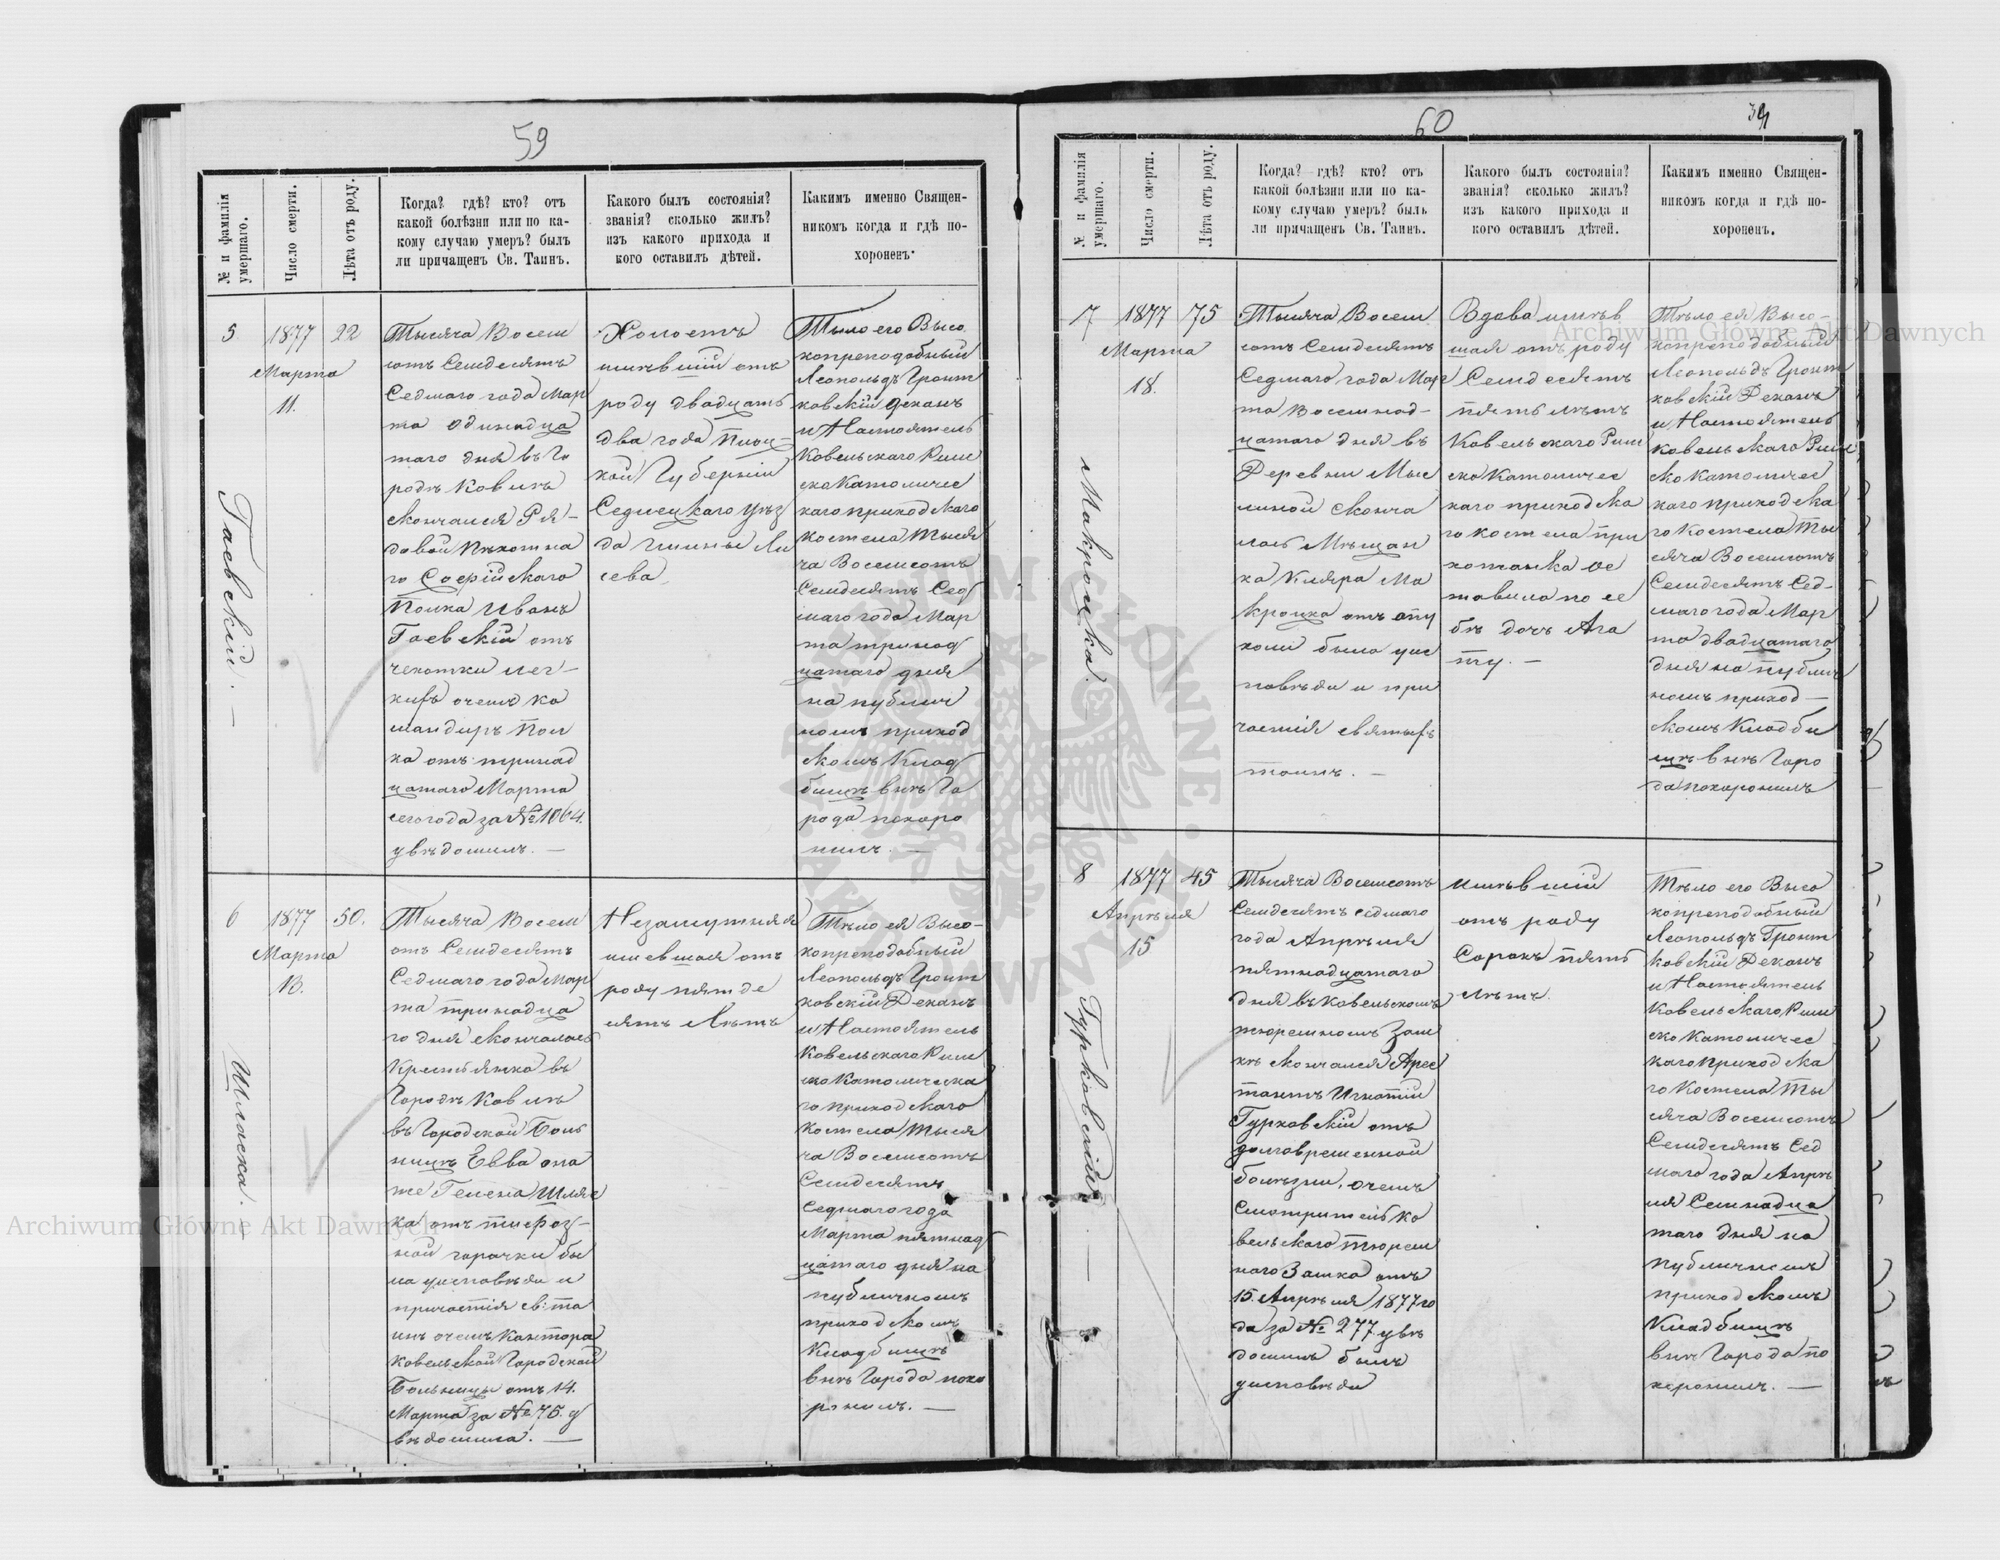 59
№ и фамилія
умершаго.
Число смерти.
Лѣта отъ роду.
Когда? гдѣ? кто? отъ
какой болѣзни или по ка-
кому случаю умеръ? былъ
ли причащенъ Св. Таинъ.
Какого былъ состоянія?
званія? сколько жилъ?
изъ какого прихода и
кого оставилъ дѣтей.
Какимъ именно Священ-
никомъ когда и гдѣ по-
хороненъ.
5
Гаевскій. —
1877
Марта
11.
22
Тысяча Восем
сотъ Семдесятъ
Седмаго года Мар
та одинадца
таго дня въ Го
родѣ Ковлѣ
скончался Ря-
довой Пѣхотна
го Софійскаго
Полка Иванъ
Гаевскій отъ
чехотки лег-
кихъ о чемъ ко
мандиръ Пол
ка отъ тринад
цатаго Марта
сего года за № 1064.
увѣдомилъ. —
Холостъ
имѣвшій отъ
роду двадцать
два года Плоц-
кой Губерніи
Седлецкаго уѣз
да гмины Ли
сева.
Тѣло его Высо
копреподобный
Леопольдъ Гронт
ковскій Деканъ
и Настоятель
Ковельскаго Рим
ско Католичес
каго приходскаго
костела Тыся
ча Восемсотъ
Семдесятъ Сед
маго года Мар
та тринад
цатаго дня
на публич
номъ приход
скомъ Клад
бищѣ внѣ Го
рода похоро
нилъ. —
6
Шляска. —
1877
Марта
13.
50.
Тысяча Восем
сотъ Семдесятъ
Седмаго года Мар
та тринадца
го дня скончалась
Крестьянка въ
Городѣ Ковлѣ
въ Городской Боль
ницѣ Евва она
же Гелена Шляс
ка отъ тифоз-
ной горячки бы
ла уисповѣди и
причастія св: та
инъ о чемъ Контора
Ковельской Городской
Больницы отъ 14.
Марта за № 75. у
вѣдомила. —
Незамужняя
имевшая отъ
роду пятде
сятъ Лѣтъ
Тѣло ея Высо-
копреподобный
Леопольдъ Гронт
ковскій Деканъ
и Настоятель
Ковельскаго Рим
ско Католическа
го приходскаго
костела Тыся
ча Восемсотъ
Семдесятъ
Седмаго года
Марта пятнад
цатаго дня на
публичномъ
приходскомъ
Кладбищѣ
внѣ Города похо
ронилъ. —
60
№ и фамилія
умершаго.
Число смерти.
Лѣта отъ роду.
Когда? гдѣ? кто? отъ
какой болѣзни или по ка-
кому случаю умеръ? былъ
ли причащенъ Св. Таинъ.
Какого былъ состоянія?
званія? сколько жилъ?
изъ какого прихода и
кого оставилъ дѣтей.
Какимъ именно Священ-
никомъ когда и гдѣ по-
хороненъ.
7
Макроцка. —
1877
Марта
18.
75
Тысяча Восем
сотъ Семдесятъ
Седмаго года Мар
та Восемнад-
цатаго дня въ
Деревни Мыс
линой сконча
лась Мѣщан
ка Кляра Ма
кроцка отъ опу
холи была уис
повѣди и при
частія святыхъ
таинъ. —
Вдова имѣв
шая отъ роду
Семдесятъ
пять лѣтъ
Ковельскаго Рим
ско Католичес
каго приходска
го костела при
хожанка ос
тавила по се
бѣ дочь Ага
ту. —
Тѣло ея Высо-
копреподобный
Леопольдъ Гронт
ковскій Деканъ
и Настоятель
Ковельскаго Рим
ско Католичес
каго приходска
го Костела Ты
сяча Восемсотъ
Семдесятъ Сед-
маго года Мар
та двадцатаго
дня на публич
номъ приход-
скомъ Кладби
щѣ внѣ Горо
да похоронилъ
8
Гурковскій. —
1877
Апрѣля
15
45
Тысяча Восемсотъ
Семдесятъ седмаго
года Апрѣля
пятнадцатаго
дня въ Ковельскомъ
тюремномъ Зам
кѣ скончался Арес
тантъ Игнатій
Гурковскій отъ
долговременной
болѣзни, о чемъ
Смотритель Ко
вельскаго тюрем
наго Замка отъ
15 Апрѣля 1877 го
да за № 277 увѣ
домилъ былъ
уисповѣди
имѣвшій
отъ роду
Сорокъ пять
лѣтъ.
Тѣло его Высо
копреподобный
Леопольдъ Гронт
ковскій Деканъ
и Настоятель
Ковельскаго Рим
ско Католичес
каго Приходска
го Костела Ты
сяча Восемсотъ
Семдесятъ Сед
маго года Апрѣ
ля Семнадца
таго дня на
публичномъ
приходскомъ
Кладбищѣ
внѣ Города по
хоронилъ. —
Archiwum Główne Akt Dawnych
Archiwum Główne Akt Dawnych